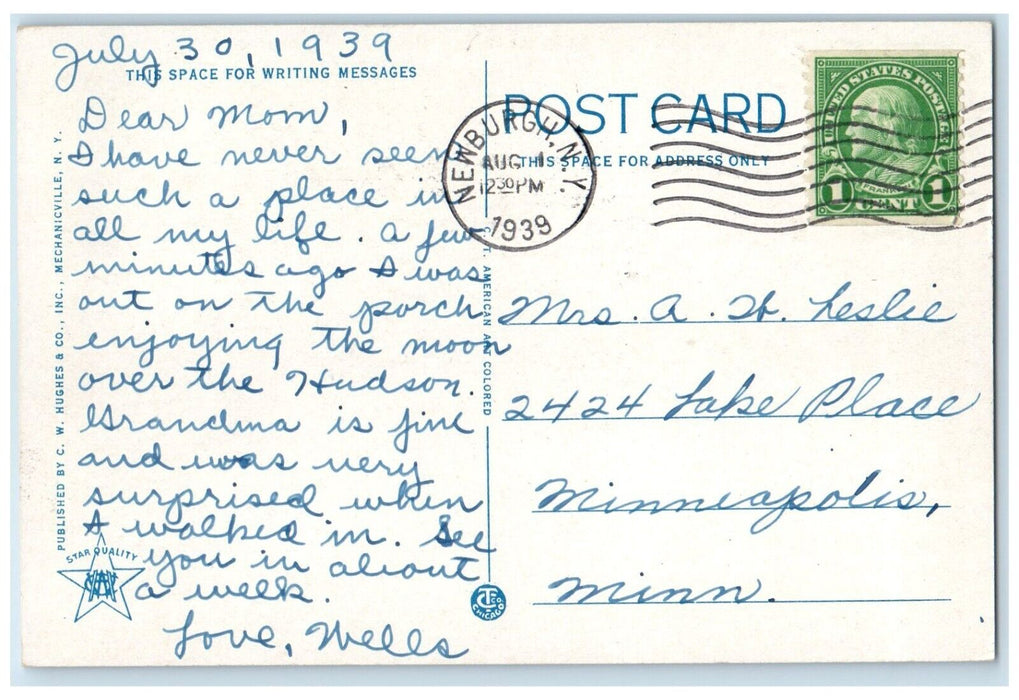 July 30, 1939
THIS SPACE FOR WRITING MESSAGES
Dear Mom,
I have never seen
such a place in
all my life. A few
minutes ago I was
out on the porch
enjoying the moon
over the Hudson.
Grandma is fine
and was very
surprised when
I walked in. See
you in about
a week.
Love, Wells
PUBLISHED BY C. W. HUGHES & CO., INC., MECHANICVILLE, N. Y.
STAR QUALITY
C.T. AMERICAN ART COLORED
CT CO
CHICAGO
POST CARD
THIS SPACE FOR ADDRESS ONLY
NEWBURGH, N.Y.
AUG 1
1230 PM
1939
UNITED STATES POSTAGE
FRANKLIN
1 CENT 1
Mrs. A. H. Leslie
2424 Lake Place
Minneapolis,
Minn.